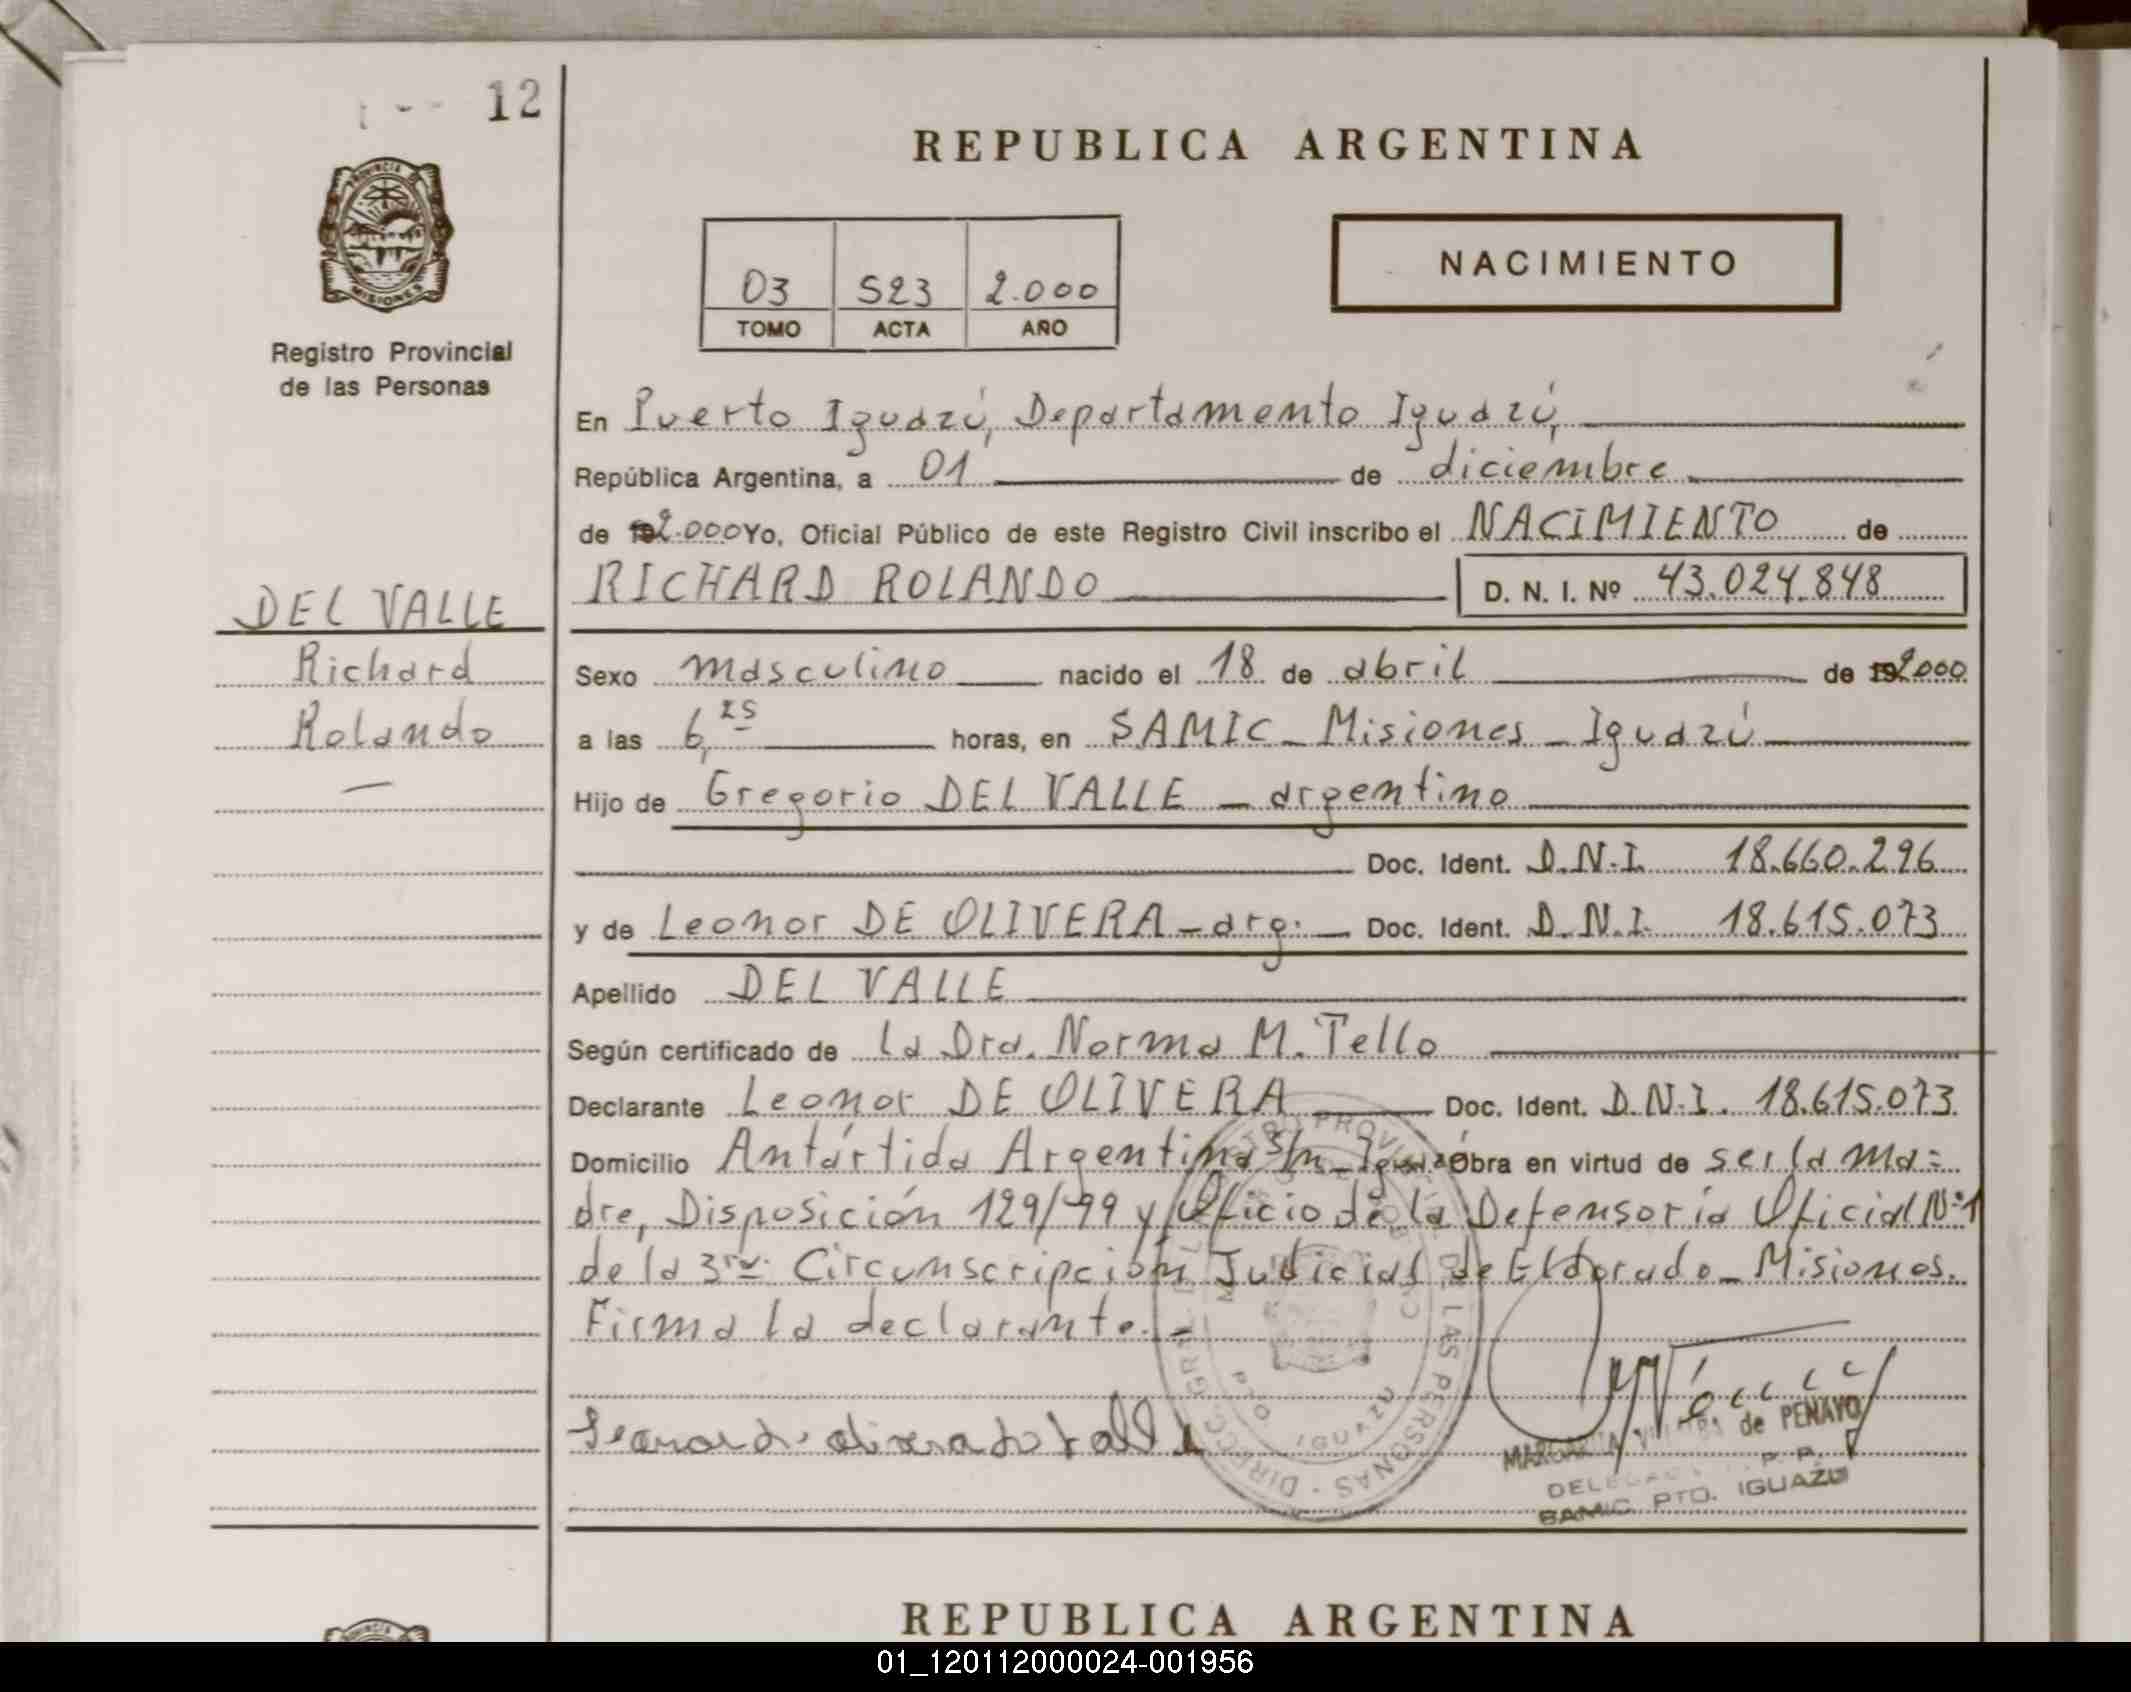 12
PROVINCIA DE
MISIONES
Registro Provincial
de las Personas
DEL VALLE
Richard
Rolando
REPUBLICA ARGENTINA
03 523 2.000
TOMO ACTA AÑO
NACIMIENTO
En Puerto Iguazú, Departamento Iguazú,
República Argentina, a 01 de diciembre
de 2.000 Yo, Oficial Público de este Registro Civil inscribo el NACIMIENTO de
RICHARD ROLANDO D. N. I. Nº 43.024.848
Sexo masculino nacido el 18 de abril de 192000
a las 6,25 horas, en SAMIC - Misiones - Iguazú
Hijo de Gregorio DEL VALLE - argentino
Doc. Ident. D.N.I. 18.660.296
y de Leonor DE OLIVERA - arg. Doc. Ident. D.N.I. 18.615.073
Apellido DEL VALLE
Según certificado de la Dra. Norma M. Tello
Declarante Leonor DE OLIVERA Doc. Ident. D.N.I. 18.615.073
Domicilio Antártida Argentina S/n - Iguazú Obra en virtud de ser la ma=
dre, Disposición 129/99 y Oficio de la Defensoría Oficial Nº1
de la 3ra. Circunscripción Judicial de Eldorado - Misiones.
Firma la declarante. -
DIRECC. GRAL. DEL REGISTRO PROVINCIAL DE LAS PERSONAS
IGUAZU
MARGARITA de PENAYO
SAMIC PTO. IGUAZU
REPUBLICA ARGENTINA
01_120112000024-001956